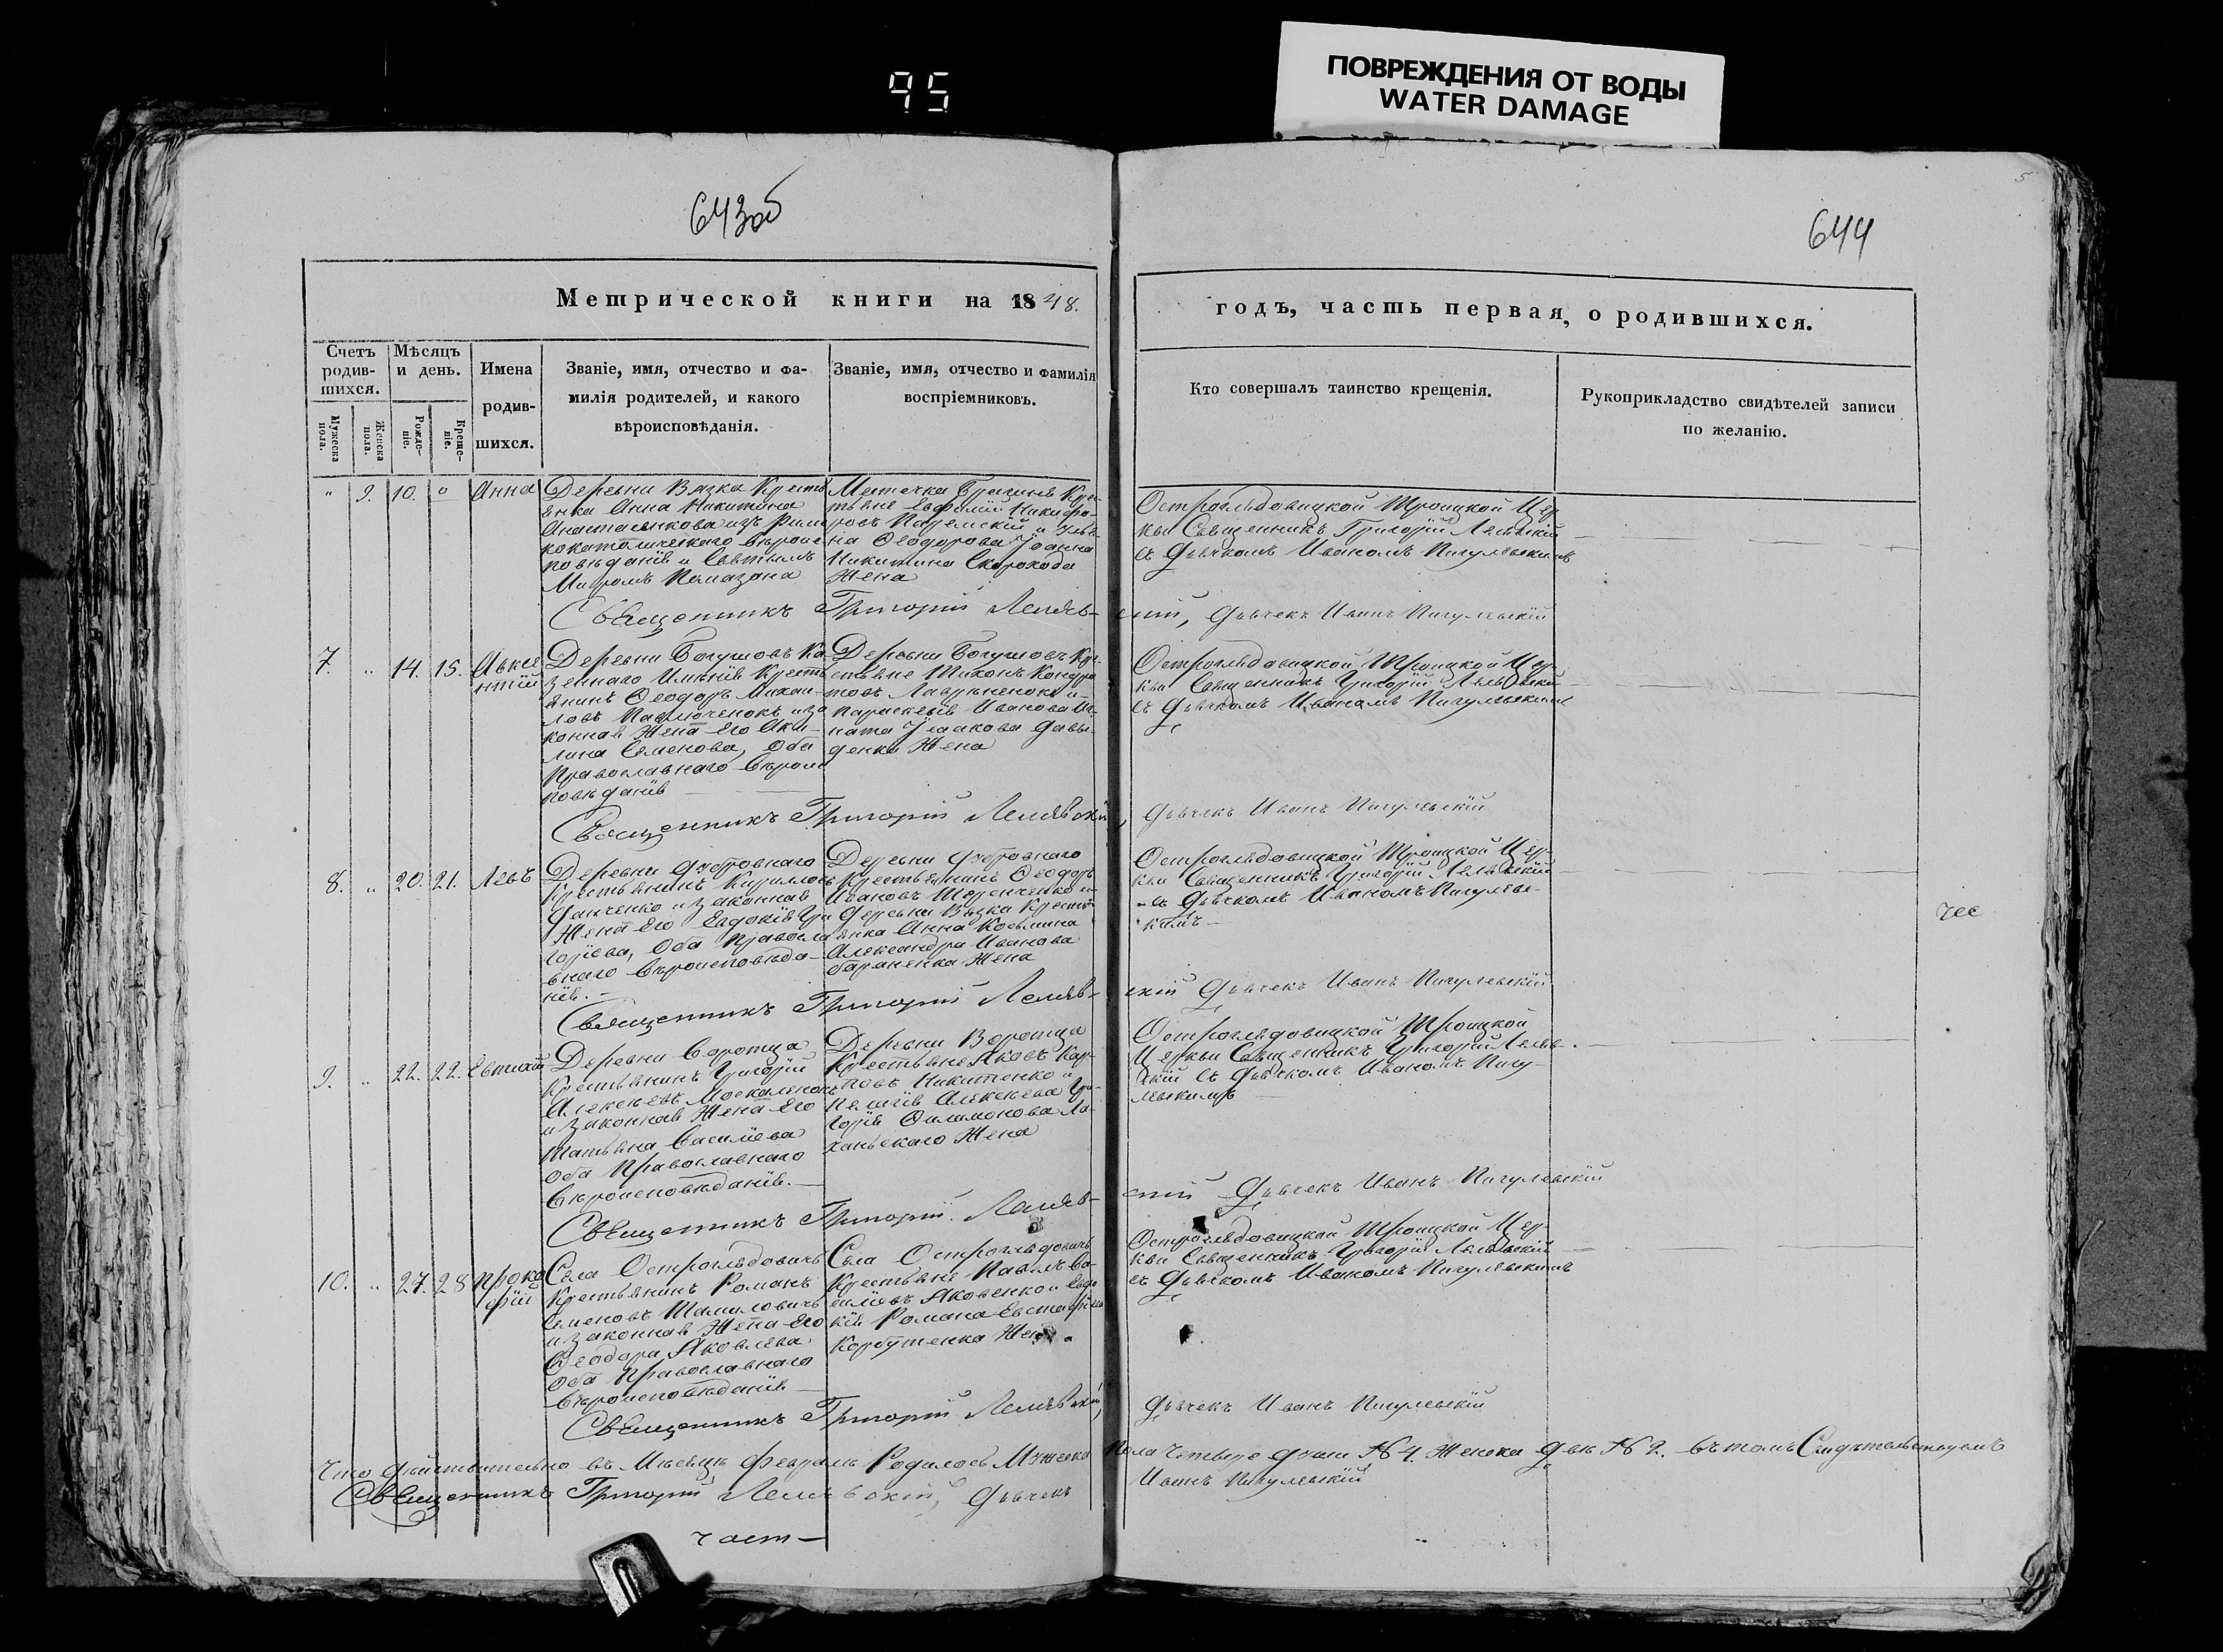 95
ПОВРЕЖДЕНИЯ ОТ ВОДЫ
WATER DAMAGE
643об
5
644
Метрической книги на 1848.
годъ, часть первая, о родившихся.
Счетъ родив-шихся.
Мѣсяцъ и день.
Имена родив-шихся.
Званіе, имя, отчество и фа-
милія родителей, и какого
вѣроисповѣданія.
Званіе, имя, отчество и фамилія
воспріемниковъ.
Кто совершалъ таинство крещенія.
Рукоприкладство свидѣтелей записи
по желанію.
Мужеска пола.
Женска пола.
Рожде-ніе.
Креще-ніе.
" 9. 10. Анна
Деревни Вязка Кресть
янка Анна Никитина
изъ Рим
вѣроис
повѣданія и Святымъ
Миромъ Помазана
Местечка Брагинъ Кре
стьяне Никифо-
ровъ и
на Ѳеодорова
Никитина Скорохода
Жена
Остроглядовицкой Троицкой Цер
кви Священникъ Григорій
съ Дьячкомъ Иваномъ Пигулевскимъ
Священникъ Григорій
скій, Дьячекъ Иванъ Пигулевскій
7. " 14. 15. Авксентій
Деревни Богушовъ Ка
зеннаго Имѣнія Кресть
янинъ Ѳеодоръ Михаи-
ловъ и за
конная Жена его Аки-
лина Семенова, Оба
Православнаго Вѣроис
повѣданія
Деревни Богушовъ Кре
стьяне Тихонъ Кондра
товъ и
Параскевія Иванова
Давы
денка Жена
Остроглядовицкой Троицкой Цер-
кви Священникъ Григорій
съ Дьячкомъ Иваномъ Пигулевскимъ
Священникъ Григорій
Дьячекъ Иванъ Пигулевскій
8. " 20. 21. Левъ
Деревни Дубровнаго
Крестьянинъ Кириллъ
Данченко и законная
Жена его Евдокія Гри
горіева, Оба Правосла
внаго Вѣроисповѣда-
нія.
Деревни Дубровнаго
Крестьянинъ Ѳеодоръ
Ивановъ и
Деревни Вязка Кресть
янка Анна Косьмина
Александра Иванова
Жена
Остроглядовицкой Троицкой Цер-
кви Священникъ Григорій
съ Дьячкомъ Иваномъ Пигулевс-
кимъ
чес
Священникъ Григорій
скій Дьячекъ Иванъ Пигулевскій
9. " 22. 22. Евтихій
Деревни Воротца
Крестьянинъ Григорій
Алексѣевъ Москаленокъ
и законная Жена его
Татьяна Василіева
Оба Православнаго
Вѣроисповѣданія.
Деревни Воротца
Крестьяне Яковъ Кар-
повъ Никитенко и
Алексѣева Гри-
горія Филимонова
Жена
Остроглядовицкой Троицкой
Церкви Священникъ Григорій
скій съ Дьячкомъ Иваномъ Пигу-
левскимъ
Священникъ Григорій
скій Дьячекъ Иванъ Пигулевскій
10. " 27. 28 Прокофій
Села Остроглядовичъ
Крестьянинъ Романъ
Семеновъ
и законная Жена его
Ѳеодора Яковлева
Оба Православнаго
Вѣроисповѣданія
Села Остроглядовичъ
Крестьяне Павелъ Ва
силіевъ Яковенко и Евдо
кія Романа Евстафіева
Корбутенка Жена
Остроглядовицкой Троицкой Цер-
кви Священникъ Григорій
съ Дьячкомъ Иваномъ Пигулевскимъ
Священникъ Григорій
Дьячекъ Иванъ Пигулевскій
Что дѣйствительно въ Мѣсяцѣ Февралѣ Родилось Мужеска Пола Четыре души № 4. Женска двѣ № 2. въ томъ Свидѣтельствуемъ
Священникъ Григорій Дьячекъ Иванъ Пигулевскій
част-